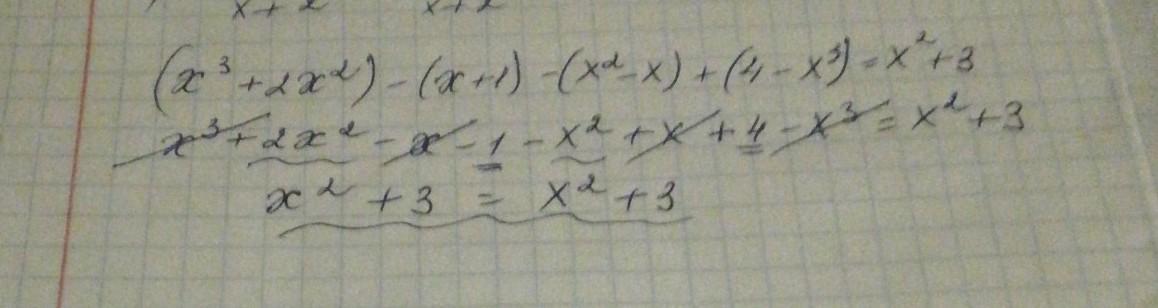 x+2 x+2
(x³+2x²)-(x+1)-(x²-x)+(4-x³)=x²+3
x³+2x²-x-1-x²+x+4-x³=x²+3
x²+3=x²+3